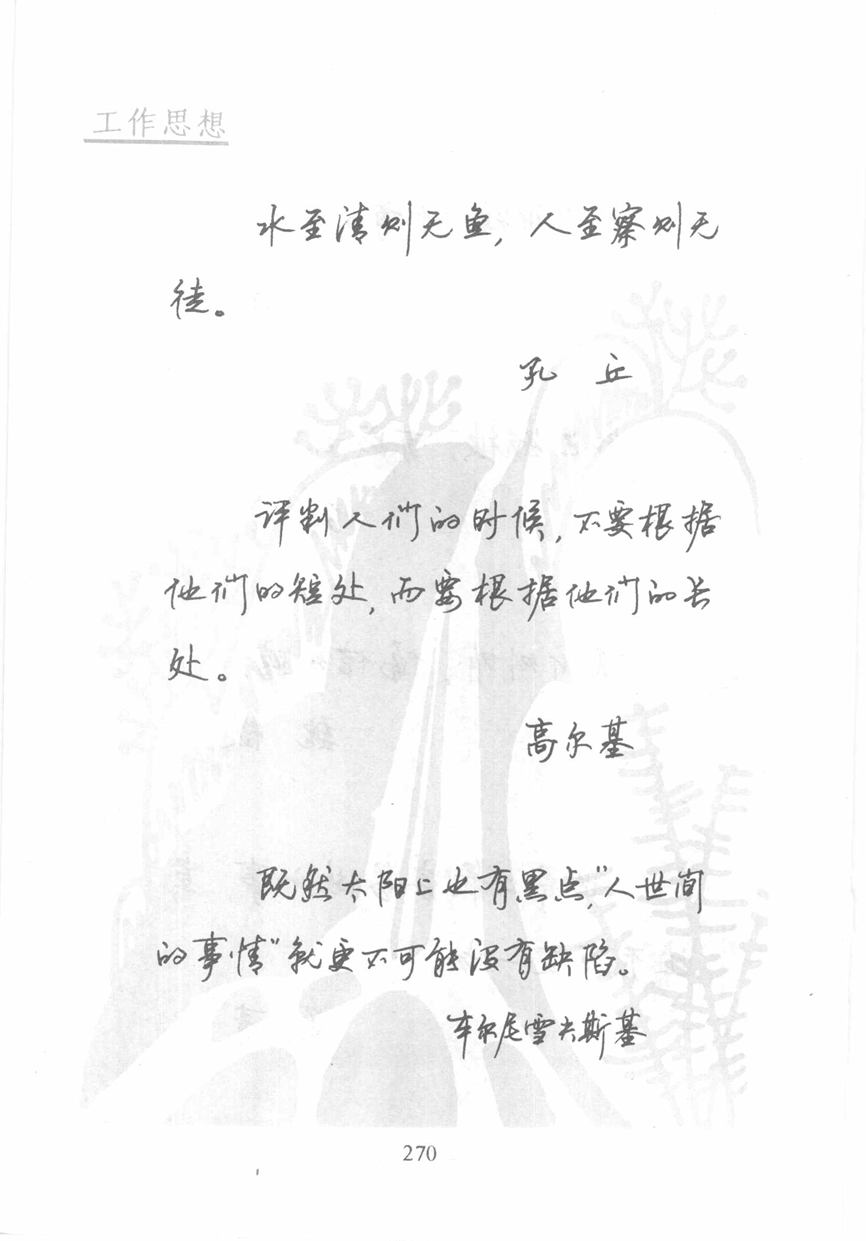 工作思想
水至清则无鱼，人至察则无
徒。
孔 丘
评判人们的时候，不要根据
他们的短处，而要根据他们的长
处。
高尔基
既然太阳上也有黑点，"人世间
的事情"就更不可能没有缺陷。
车尔尼雪夫斯基
270